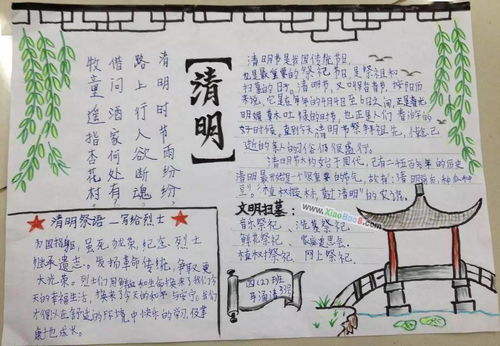 清明时节雨纷纷,
路上行人欲断魂
借问酒家何处有
牧童遥指杏花村
【清明】
清明节是我国传统节日,
也是最重要的祭祀节日,是祭祖和
扫墓的日子。清明节,又叫踏青节,按阳历
来说,它是在每年的4月4日至6日之间,正是春光
明媚草木吐绿的时节,也正是人们春游的
好时候,直到今天清明节祭拜祖先,悼念已
逝的亲人的习俗仍很盛行。
清明节大约始于周代,已有二千五百多年的历史
清明最开始是一个很重要的节气,故有:清明前后,种瓜种
豆"."植树造林,莫过清明"的农谚。
清明祭语—写给烈士
为国捐躯,虽死犹荣,纪念烈士
继承遗志。发扬革命传统,争取更
大光荣。烈士们用鲜血和生命换来了我们今
天的幸福生活,换来了今天的和平与安宁。我们
才得以在舒适的环境中快乐的学习,健康
成长。
文明扫墓:
音乐祭祀、洗墓祭祀
鲜花祭祀、家庭追思会
植树祭祀、网上祭祀
四(2)班
www.XiaoBao8.com